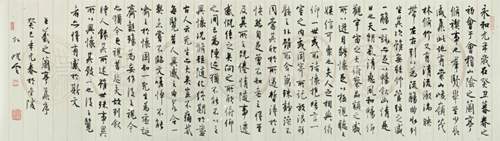 永和九年歲在癸丑暮春之
初會于會稽山陰之蘭亭
脩禊事也羣賢畢至少長
咸集此地有崇山峻領茂
林脩竹又有清流激湍映
帶左右引以為流觴曲水列
坐其次雖無絲竹管弦之盛
一觴一詠亦足以暢敘幽情是
日也天朗氣清惠風和暢仰
觀宇宙之大俯察品類之盛
所以遊目騁懷足以極視聽之
娛信可樂也夫人之相與俯仰
一世或取諸懷抱悟言一
室之內或因寄所託放浪形
骸之外雖趣舍萬殊靜躁不
同當其欣於所遇暫得於己
快然自足不知老之將至
及其所之既惓情隨事遷
感慨係之矣向之所欣俛仰
之間已為陳迹猶不能不以
之興懷況脩短隨化終期於盡
古人云死生亦大矣豈不痛哉
每覽昔人興感之由若合一
契未嘗不臨文嗟悼不能喻
之於懷固知一死生為虛誕
齊彭殤為妄作後之視今
亦猶今之視昔悲夫故列敘
時人錄其所述雖世殊事
異所以興懷其致一也後之覽
者亦將有感於斯文
王羲之蘭亭集序
癸巳年元春於